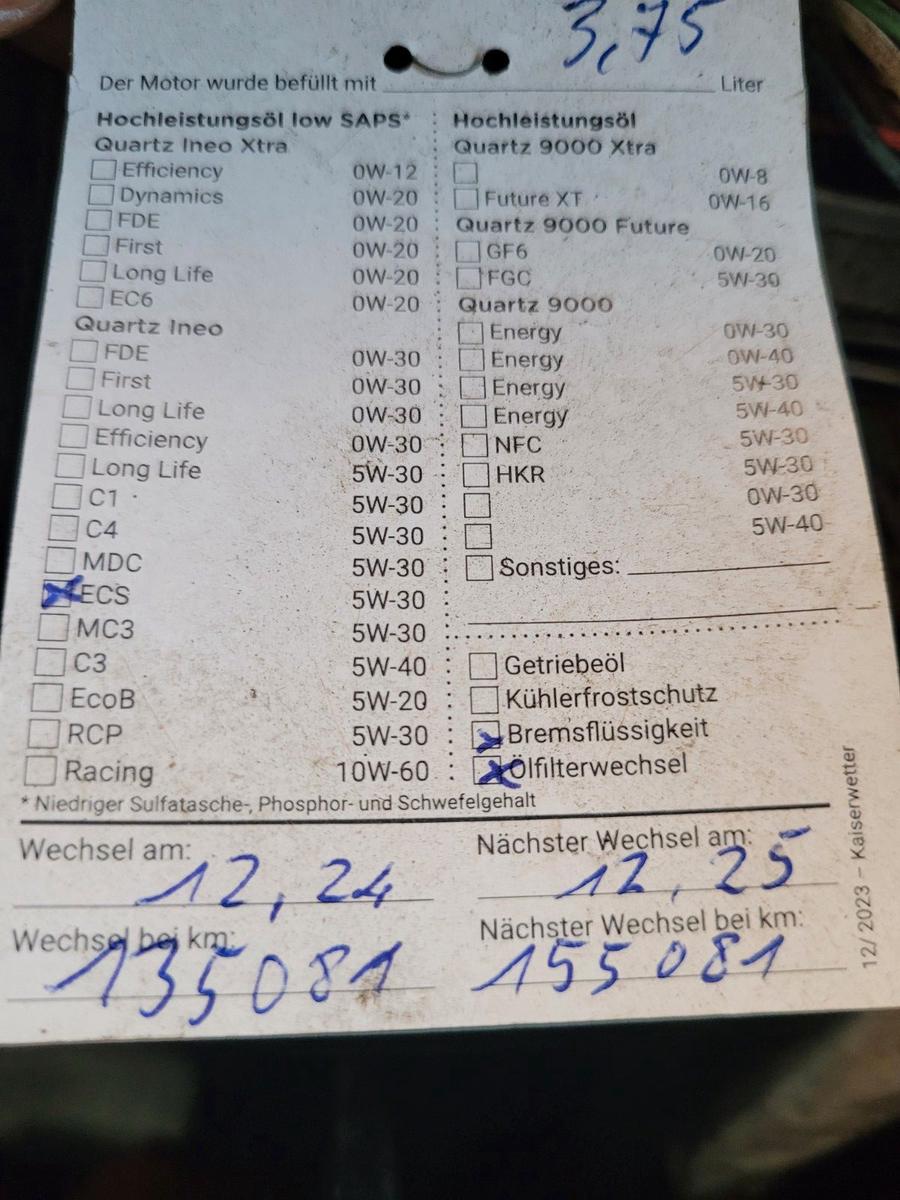 3,75
Der Motor wurde befüllt mit Liter
Hochleistungsöl low SAPS*
Quartz Ineo Xtra
Efficiency 0W-12
Dynamics 0W-20
FDE 0W-20
First 0W-20
Long Life 0W-20
EC6 0W-20
Quartz Ineo
FDE 0W-30
First 0W-30
Long Life 0W-30
Efficiency 0W-30
Long Life 5W-30
C1 5W-30
C4 5W-30
MDC 5W-30
ECS 5W-30
MC3 5W-30
C3 5W-40
EcoB 5W-20
RCP 5W-30
Racing 10W-60
Hochleistungsöl
Quartz 9000 Xtra
0W-8
Future XT 0W-16
Quartz 9000 Future
GF6 0W-20
FGC 5W-30
Quartz 9000
Energy 0W-30
Energy 0W-40
Energy 5W-30
Energy 5W-40
NFC 5W-30
HKR 5W-30
0W-30
5W-40
Sonstiges:
Getriebeöl
Kühlerfrostschutz
Bremsflüssigkeit
Ölfilterwechsel
* Niedriger Sulfatasche-, Phosphor- und Schwefelgehalt
Wechsel am: 12,24
Nächster Wechsel am: 12,25
Wechsel bei km: 135081
Nächster Wechsel bei km: 155081
12/2023 – Kaiserwetter